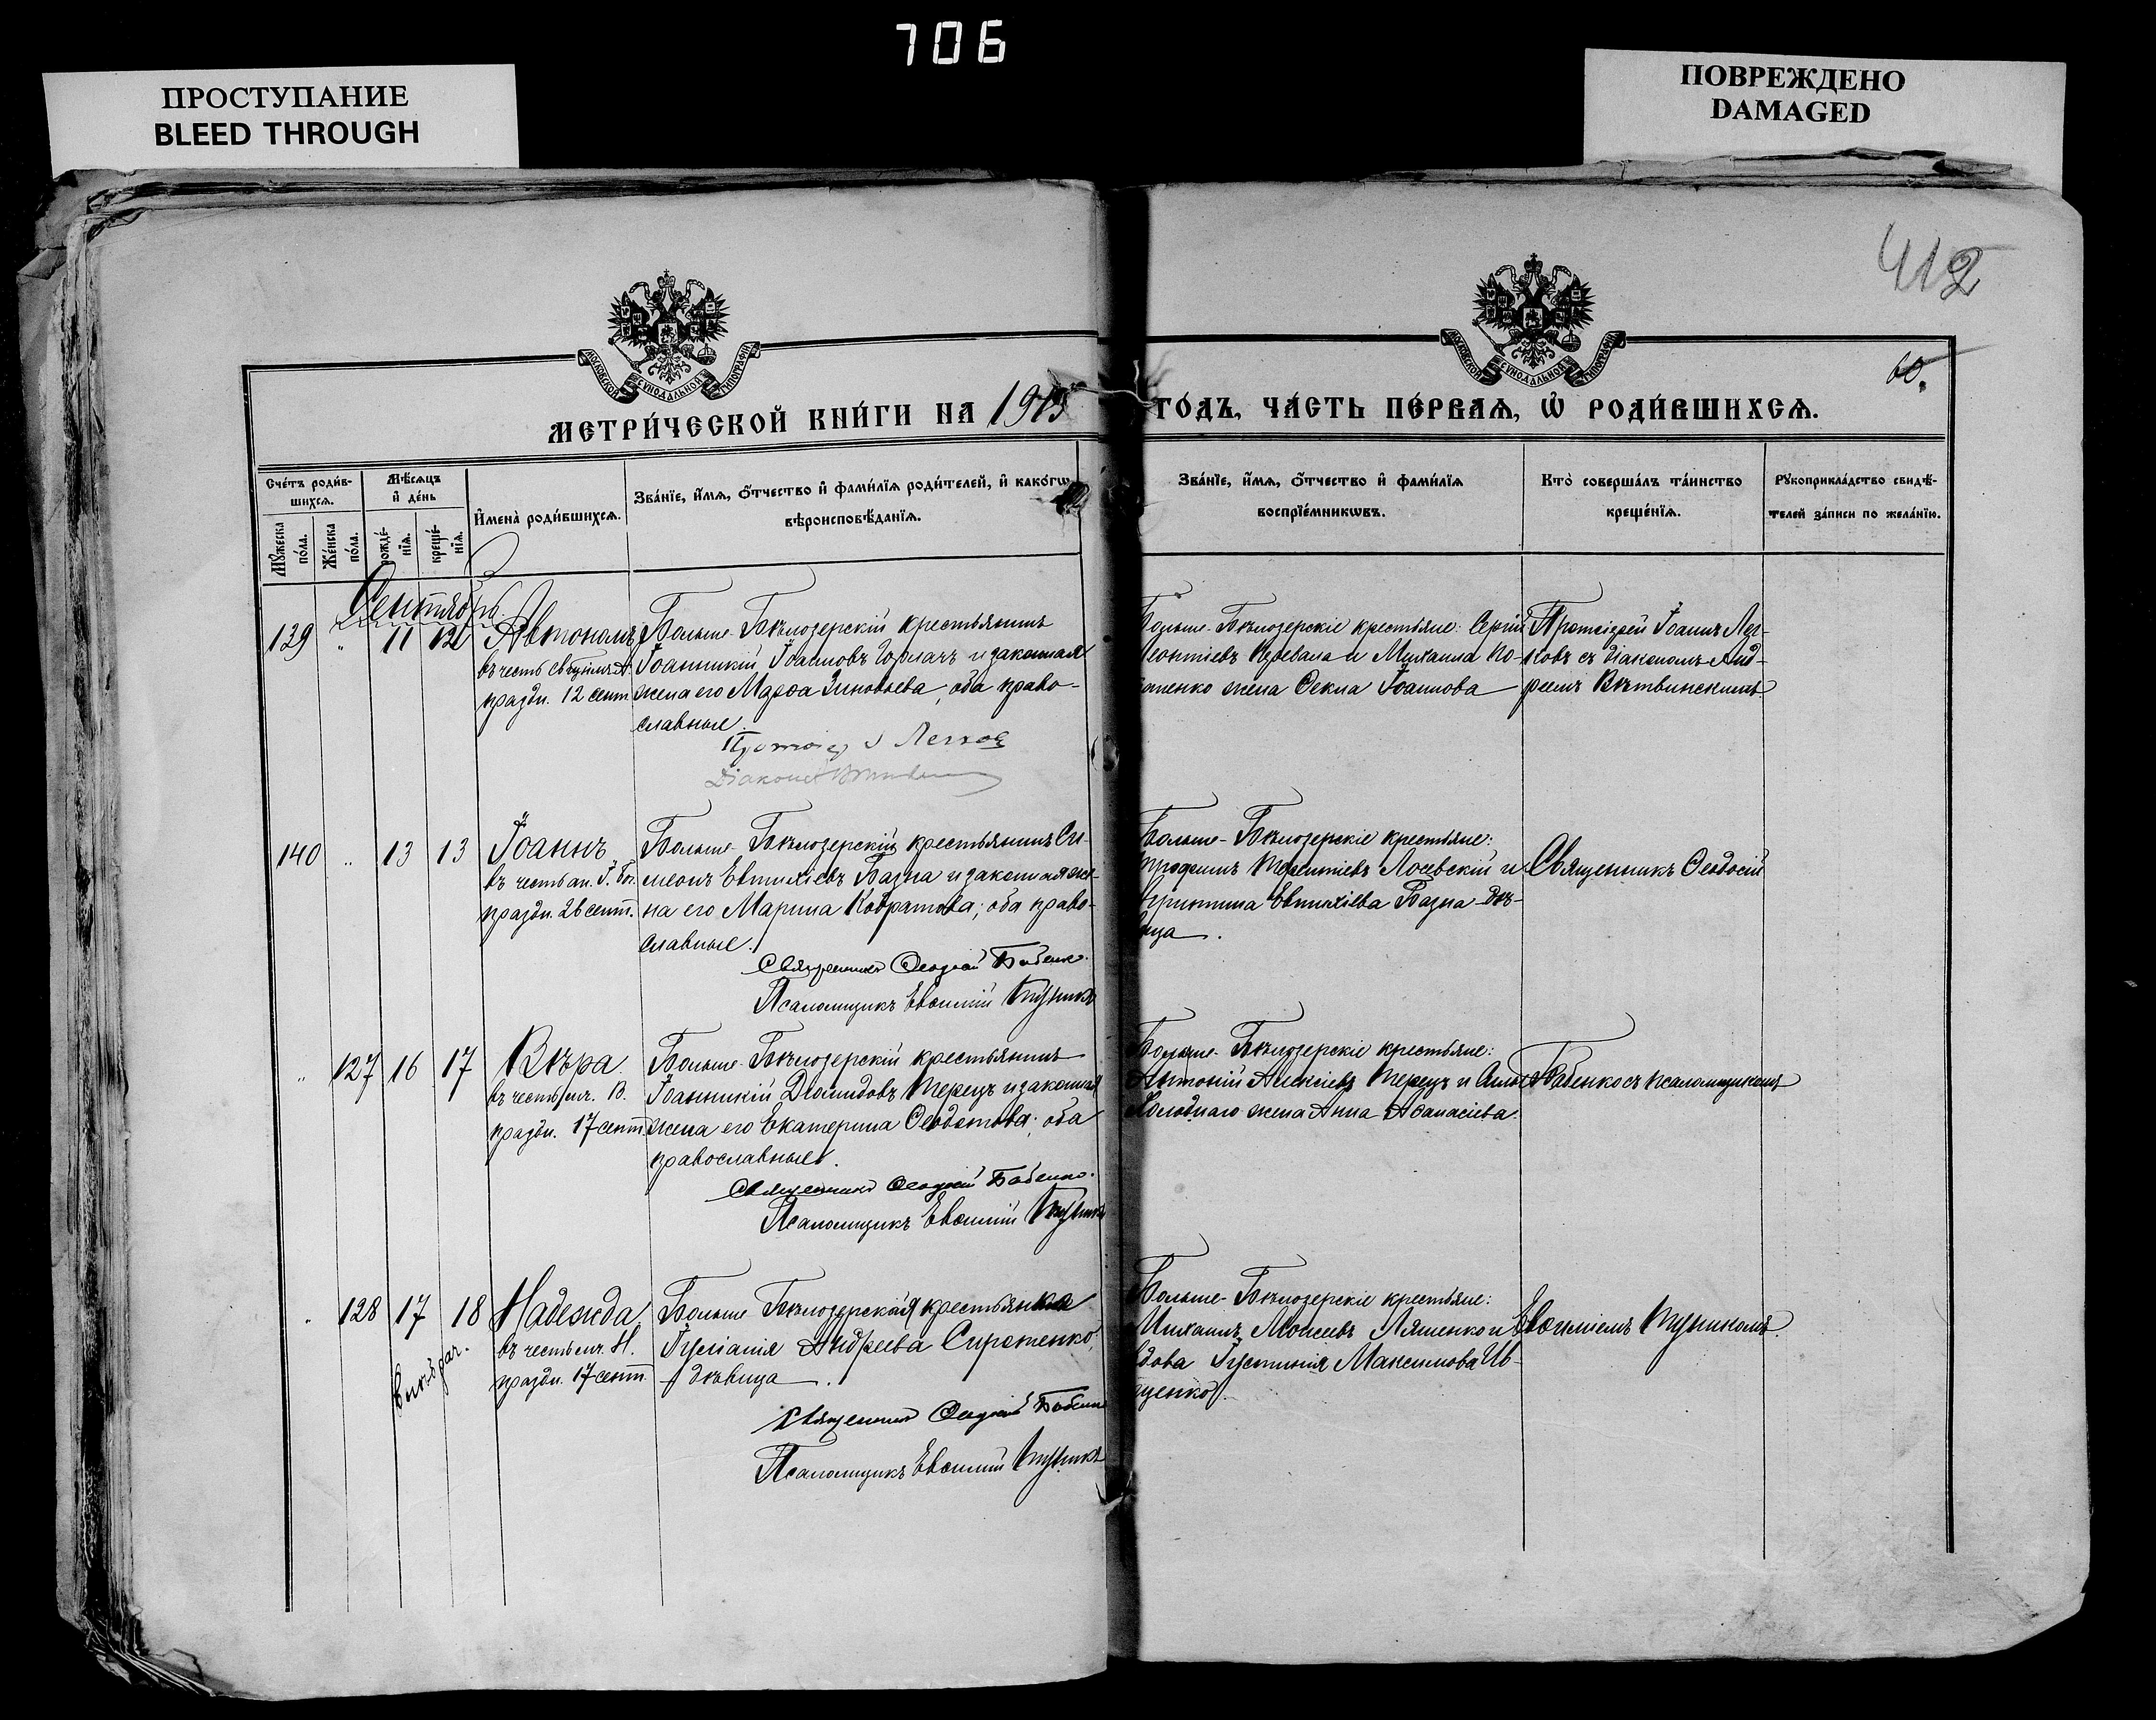 706
ПРОСТУПАНИЕ
BLEED THROUGH
ПОВРЕЖДЕНО
DAMAGED
412
60.
МОСКОВСКОЙ СѴНОДАЛЬНОЙ ТИПОГРАФІИ
МОСКОВСКОЙ СѴНОДАЛЬНОЙ ТИПОГРАФІИ
МЕТРИ́ЧЕСКОЙ КНИ́ГИ НА 1913
ГО́ДЪ, ЧА́СТЬ ПЕ́РВАѦ, Ѡ҆ РОДИ́ВШИХСѦ.
Сче́тъ роди́в-
шихсѧ.
Мꙋ́жеска по́ла.
Же́нска по́ла.
Мѣ́сѧцъ
и҆ де́нь
рожде́-
нїѧ.
креще́-
нїѧ.
И҆мена̀ роди́вшихсѧ.
Зва́нїе, и҆́мѧ, ѻ҆́тчество и҆ фами́лїѧ роди́телей, и҆ како́гѡ
вѣроисповѣ́данїѧ.
Зва́нїе, и҆́мѧ, ѻ҆́тчество и҆ фами́лїѧ
воспрїе́мникѡвъ.
Кто̀ соверша́лъ та́инство
креще́нїѧ.
Рꙋкоприкла́дство свидѣ́-
телей за́писи по жела́нїю.
Сентябрь.
139 " 11 12 Автономъ
въ честь
праздн. 12 сент.
Больше-Бѣлозерскій крестьянинъ
Іоанникій Іоанновъ Горлачъ и законная
жена его Марѳа Зиновьева, оба право-
славные.
Протоіер І Легков
Діаконъ
Больше-Бѣлозерскіе крестьяне: Сергій
Леонтіевъ Перевала и Михаила По-
жена Ѳекла Іоаннова
Протоіерей Іоаннъ Лег-
ковъ съ діакономъ Анд-
реемъ
140 " 13 13 Іоаннъ
въ честь ап. І. Бог.
праздн. 26 сент.
Больше-Бѣлозерскій крестьянинъ Си-
меонъ Евтихіевъ Базна и законная же-
на его Марина Кодратова; оба право-
славные.
Священникъ Ѳеодосій Бабенко.
Псаломщикъ Евѳимій
Больше-Бѣлозерскіе крестьяне:
Трофимъ Терентіевъ Лосевскій и
Евтихіева Базна дѣ-
вица.
Священникъ Ѳеодосій
" 127 16 17 Вѣра
въ честь мч. В.
праздн. 17 сент.
Больше-Бѣлозерскій крестьянинъ
Іоанникій Діомидовъ Терецъ и законная
жена его Екатерина Ѳеодотова; оба
православные.
Священникъ Ѳеодосій Бабенко.
Псаломщикъ Евѳимій
Больше-Бѣлозерскіе крестьяне:
Антоній Алексіевъ Терецъ и
Холоднаго жена Анна Аѳанасіева.
Бабенко съ псаломщикомъ
" 128 17 18 Надежда
внѣбрач.
въ честь мч. Н.
праздн. 17 сент.
Больше Бѣлозерская крестьянка
Андреева Сиротенко,
дѣвица.
Священникъ Ѳеодосій Бабенко
Псаломщикъ Евѳимій
Больше-Бѣлозерскіе крестьяне:
Михаилъ Моисеевъ Ляшенко и
вдова Іустинія Максимова Ив-
ченко.
Евѳиміемъ